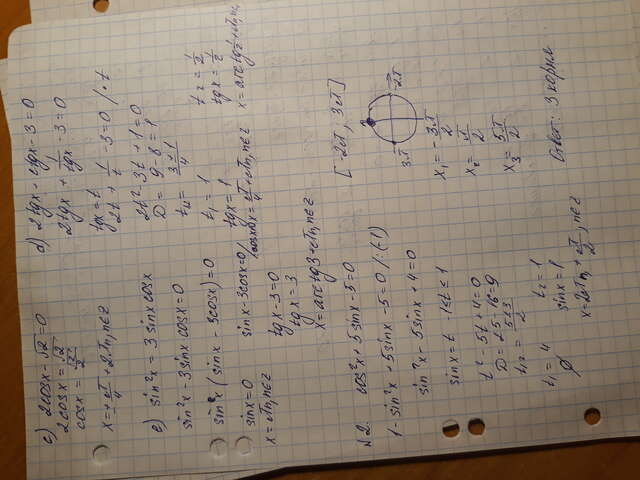 c) 2cosx-√2=0
2cosx=√2
cosx=√2/2
x=±π/4+2πn, n∈z
e) sin²x=3sinxcosx
sin²x-3sinxcosx=0
sinx(sinx-3cosx)=0
sinx=0
x=πn, n∈z
sinx-3cosx=0/cosx≠0
tgx-3=0
tgx=3
x=arctg3+πn, n∈z
d) 2tgx+ctgx-3=0
2tgx+1/tgx-3=0
tgx=t
2t+1/t-3=0/·t
2t²-3t+1=0
D=9-8=1
t₁,₂=3±1/4
t₁=1
tgx=1
x=π/4+πn, n∈z
t₂=1/2
tgx=1/2
x=arctg1/2+πn, n∈z
№2. cos²x+5sinx-5=0
1-sin²x+5sinx-5=0/:(-1)
sin²x-5sinx+4=0
sinx=t -1≤t≤1
t²-5t+4=0
D=25-16=9
t₁,₂=5±3/2
t₁=4
∅
t₂=1
sinx=1
x=2πn+π/2, n∈z
[-2π; 3π]
-2π
3π
x₁=-3π/2
x₂=π/2
x₃=5π/2
Ответ: 3 корня.